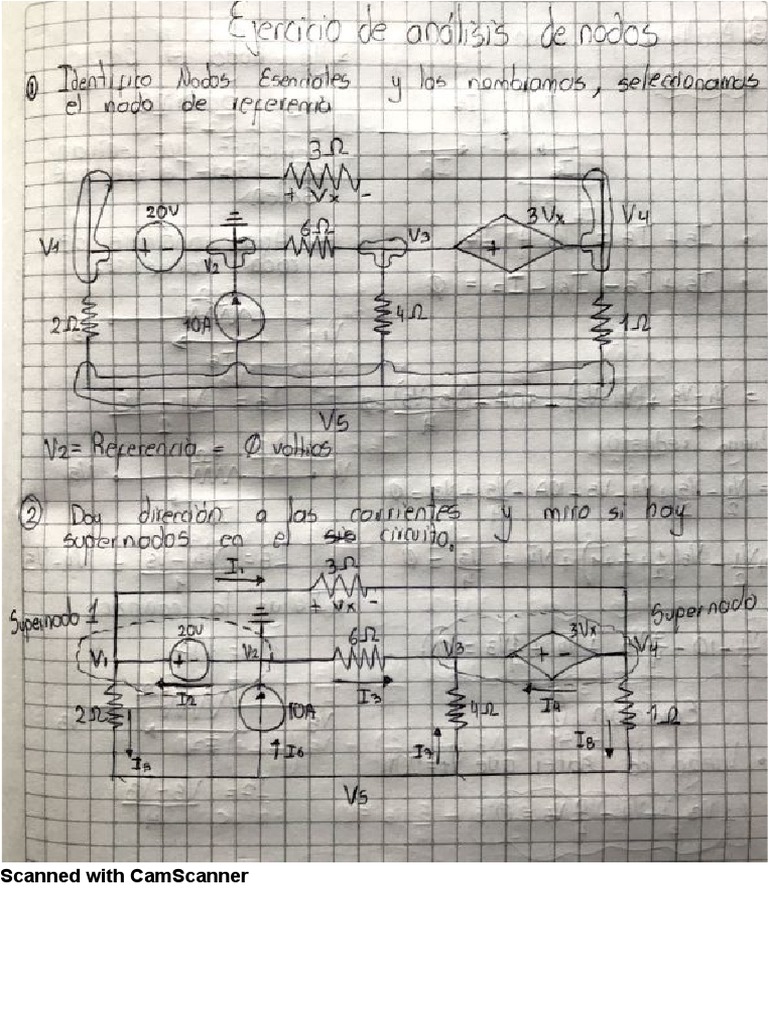 Ejercicio de análisis de nodos
① Identifico Nodos Esenciales y los nombramos, seleccionamos
el nodo de referencia
3Ω
+ Vx -
20V
6Ω
3Vx
V4
V1
+ -
V2
V3
+ -
2Ω
10A
4Ω
1Ω
V5
V2= Referencia = 0 voltios
② Doy dirección a las corrientes y miro si hay
supernodos en el circuito.
I1
3Ω
+ Vx -
Supernodo 1
Supernodo
20V
6Ω
3Vx
V1
+ -
V2
V3
+ -
V4
I2
I3
I4
2Ω
10A
4Ω
1Ω
I6
I7
I8
V5
Scanned with CamScanner